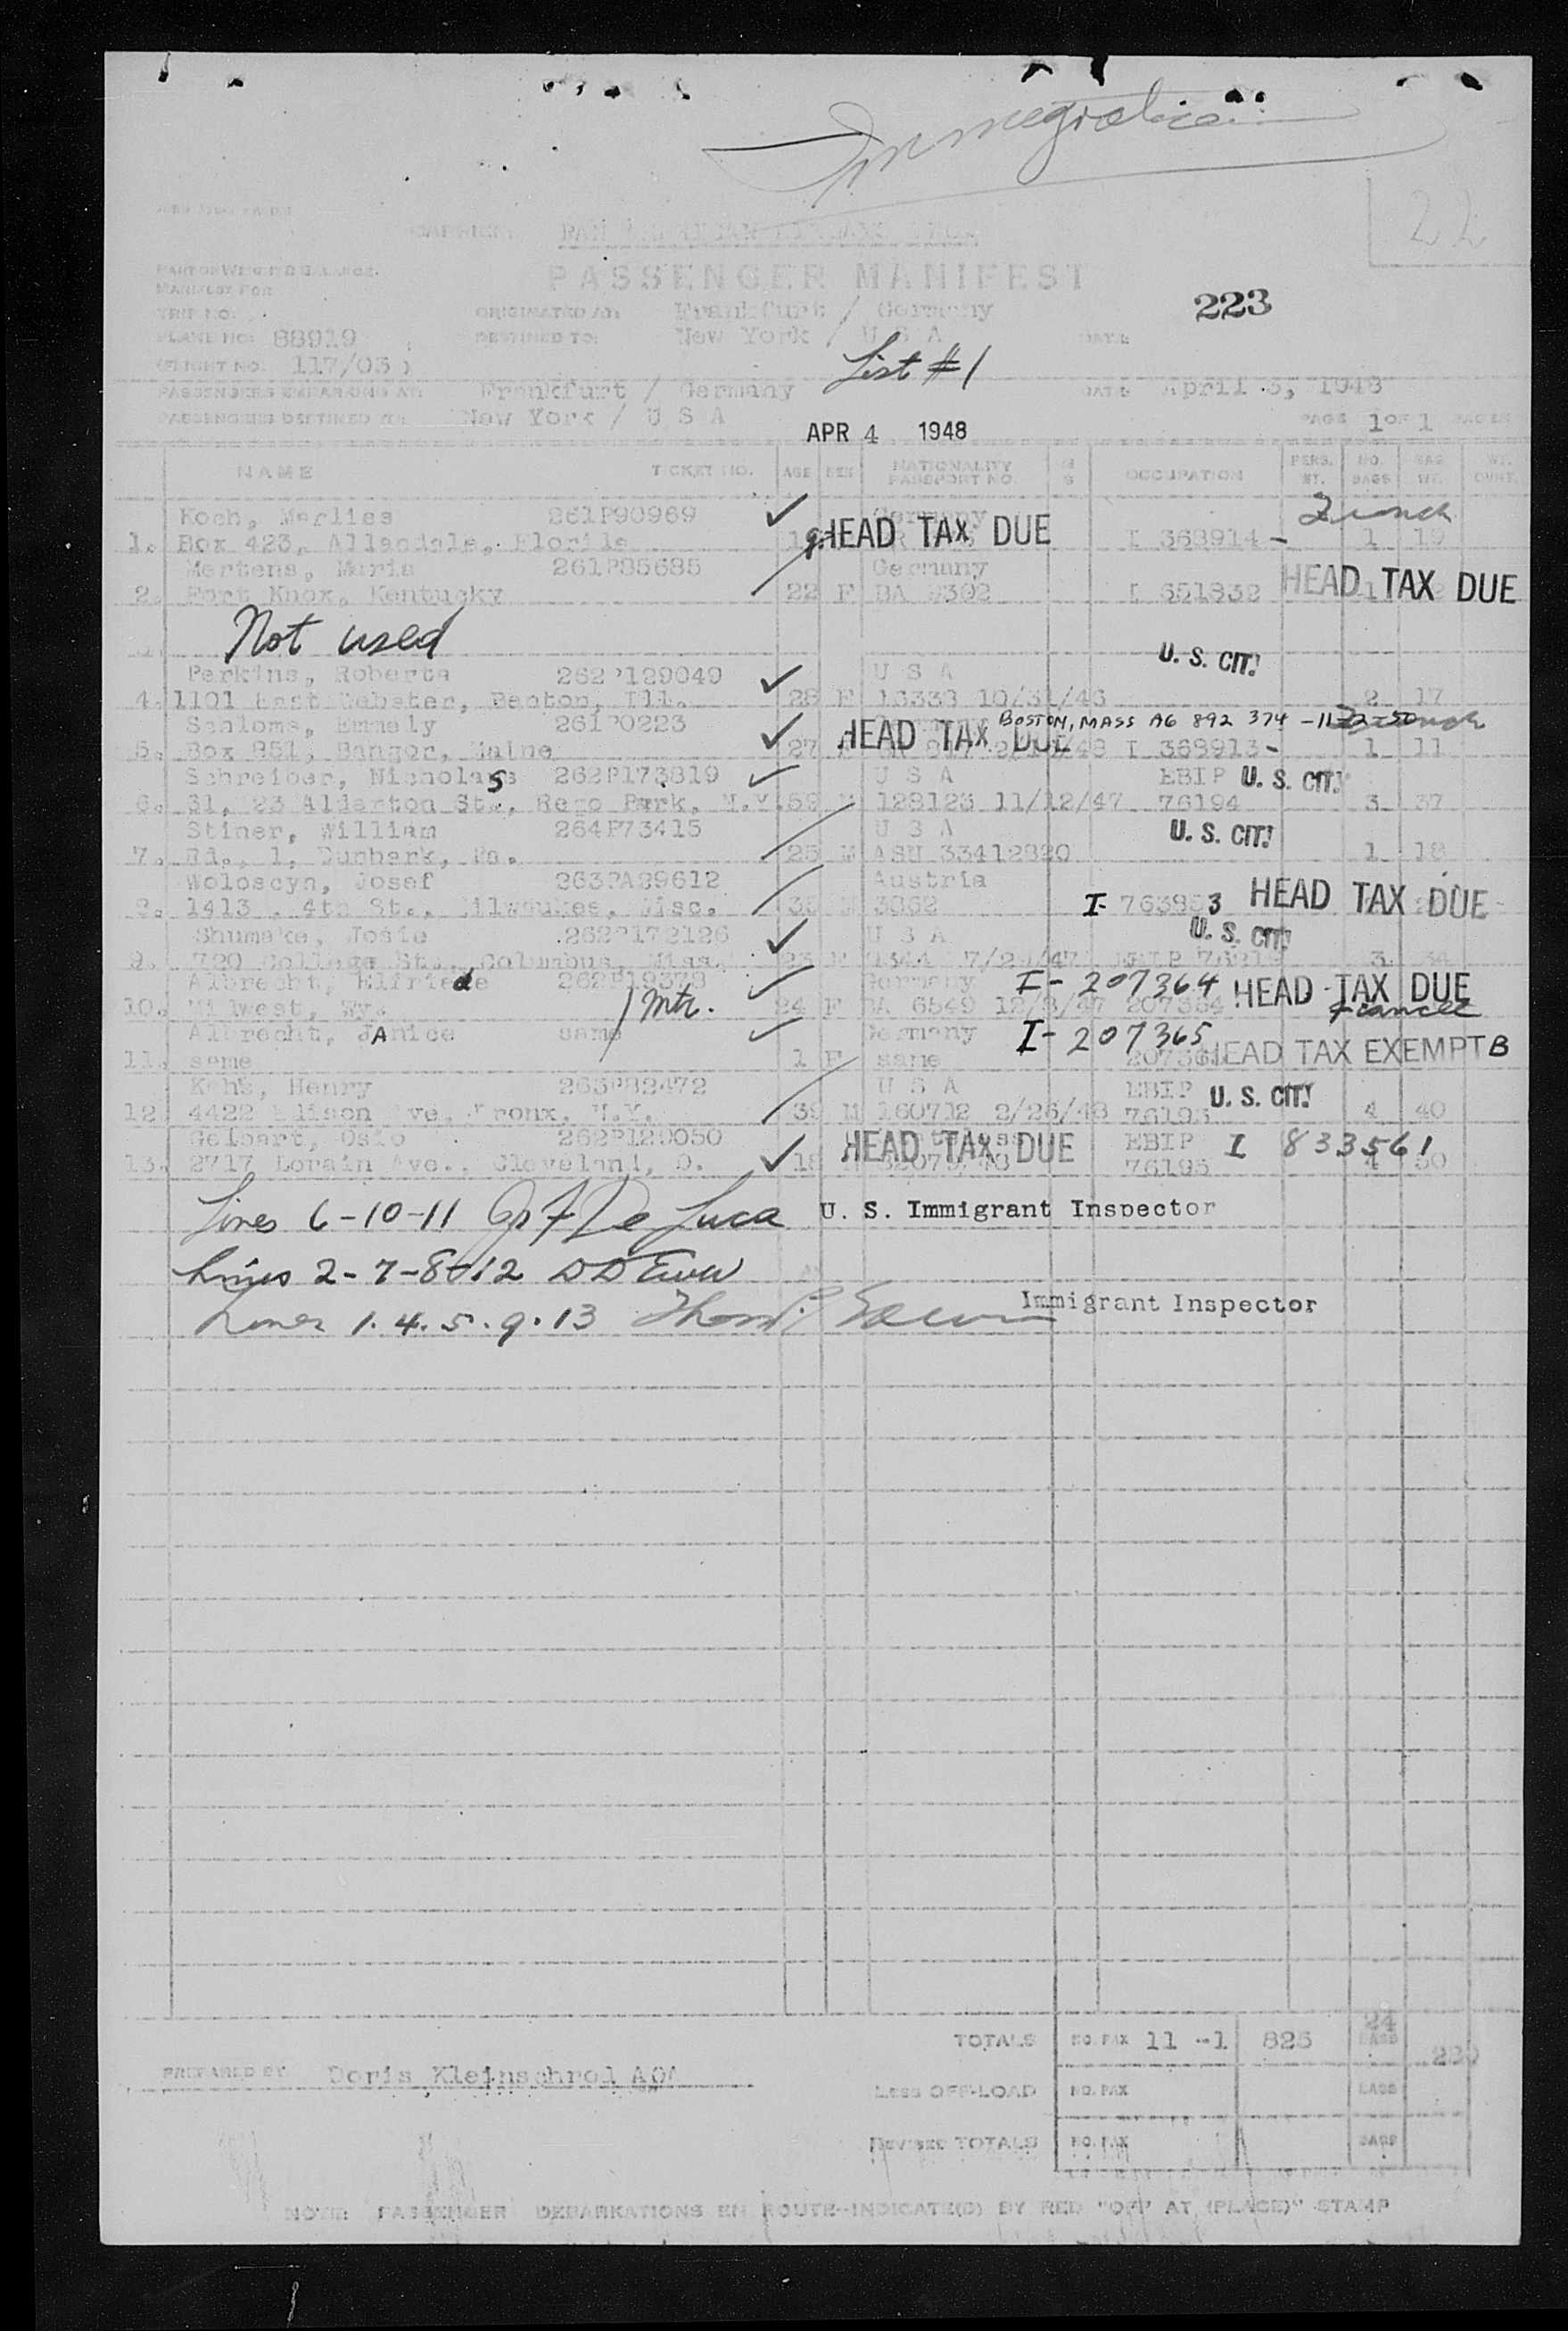 Immigration
22
PAN AMERICAN AIRWAYS INC.
PASSENGER MANIFEST
223
PART OF WEIGHT & BALANCE
MANIFEST FOR
TRIP NO.
ORIGINATED AT: Frankfurt / Germany
PLANE NO: 88919 DESTINED TO: New York / U S A DATE
(FLIGHT NO. 117/03)
List #1
PASSENGERS EMBARKING AT: Frankfurt / Germany DATE April 3, 1948
PASSENGERS DESTINED TO: New York / U S A PAGE 1 OF 1 PAGES
APR 4 1948
NAME TICKET NO. AGE SEX NATIONALITY PASSPORT NO. M S OCCUPATION PERS. WT. NO. BAGS BAG WT. WT. OVWT.
Koch, Marlies 261P90969 Germany
1. Box 423, Allandale, Florida HEAD TAX DUE I 368914 - 1 19
Mertens, Maria 261P85685 Germany
2. Fort Knox, Kentucky 22 F BA 9392 I 651832 HEAD TAX DUE
Not used
Perkins, Roberta 262P129049 U S A U. S. CIT.
4. 1101 East Webster, Benton, Ill. 28 F 16333 10/31/46 2 17
Scaloms, Emmely 261P0223 HEAD TAX DUE BOSTON, MASS A6 892 374
5. Box 851, Bangor, Maine 27 I 368913 - 1 11
Schreiber, Nicholas 262P173819 U S A EBIP U. S. CIT.
6. 61, 23 Alderton St., Rego Park, N.Y. 59 M 128123 11/12/47 76194 3 37
Stiner, William 264P73415 U S A U. S. CIT.
7. Rd., 1, Dunbark, Pa. 25 M ASU 33412820 1 18
Woloscyn, Josef 263PA29612 Austria
8. 1413 . 4th St., Milwaukee, Wisc. 3862 I- 763953 HEAD TAX DUE
Shumake, Josie 262P172126 U S A U. S. CIT.
9. 720 College St., Columbus, Miss. 23 F 3
Albrecht, Elfriede 262P19378 Germany I- 207364 HEAD TAX DUE
10. Midwest, Wy. 1 Mtr. 24 F BA 6549 12/8/47 207364 Fiancee
Albrecht, JAnice same Germany I- 207365
11. same 1 F same HEAD TAX EXEMPT B
Kehs, Henry 263P82472 U S A EBIP U. S. CIT.
12. 4422 Edison Ave, Bronx, N.Y. 39 M 160712 2/26/48 76195 4 40
Gelbart, Osio 262P120050 HEAD TAX DUE EBIP I 833561
13. 2717 Lorain Ave., Cleveland, O. 18 76195 4 50
Lines 6-10-11 De Luca U. S. Immigrant Inspector
Lines 2-7-8-12 DD
Immigrant Inspector
Lines 1.4.5.9.13
TOTALS NO. PAX 11 -1 825 24 BAGS
PREPARED BY Doris Kleinschrod AOA
Less OFF-LOAD NO. PAX BAGS
REVISED TOTALS NO. PAX BAGS
NOTE: PASSENGER DEBARKATIONS EN ROUTE--INDICATE(D) BY RED "OFF AT (PLACE)" STAMP